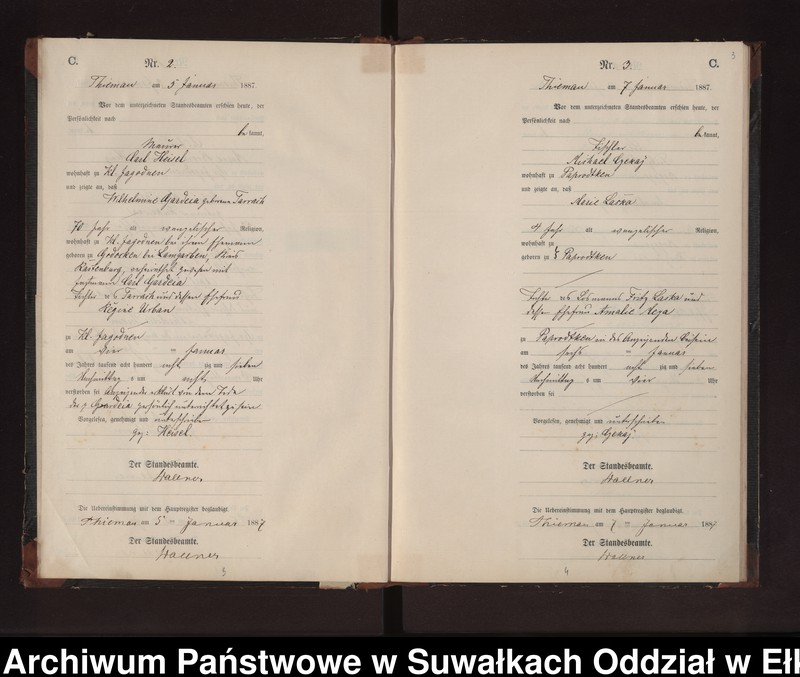 C.
Nr. 2.
Thieman am 5 Januar 1887.
Vor dem unterzeichneten Standesbeamten erschien heute, der
Persönlichkeit nach
bekannt,
Maurer
Carl Heisel
wohnhaft zu Kl. Jagodnen
und zeigte an, daß
Wilhelmine Gardeia geborene Tarrach
70 Jahr alt evangelischer Religion,
wohnhaft zu Kl. Jagodnen bei ihrem Ehemann
geboren zu bei Langarben, Kreis
Rastenburg, verheirathet gewesen mit
Carl Gardeia
Tochter Tarrach und dessen Ehefrau
Regine Urban
zu Kl. Jagodnen
am vier Januar
des Jahres tausend acht hundert acht zig und sieben
Nachmittag s um Uhr
verstorben sei Anzeigender erklärt von dem Tode
der Gardeia persönlich unterrichtet zu sein
Vorgelesen, genehmigt und unterschrieben
gez: Heisel.
Der Standesbeamte.
Wallner
Die Uebereinstimmung mit dem Hauptregister beglaubigt.
Thieman am 5 ten Januar 1887
Der Standesbeamte.
Wallner
5
3
Nr. 3.
C.
Thieman am 7 Januar 1887.
Vor dem unterzeichneten Standesbeamten erschien heute, der
Persönlichkeit nach
bekannt,
Tischler
Michael Czekaj
wohnhaft zu Paprodtken
und zeigte an, daß
Marie Laska
4 Jahr alt evangelischer Religion,
wohnhaft zu
geboren zu Paprodtken
Tochter des Losmanns Fritz Laska und
dessen Ehefrau Amalie
zu Paprodtken in des Anzeigenden Beisein
am sechs ten Januar
des Jahres tausend acht hundert acht zig und sieben
Nachmittag s um vier Uhr
verstorben sei
Vorgelesen, genehmigt und unterschrieben
gez: Czekaj.
Der Standesbeamte.
Wallner
Die Uebereinstimmung mit dem Hauptregister beglaubigt.
Thieman am 7 ten Januar 1887
Der Standesbeamte.
Wallner
4
Archiwum Państwowe w Suwałkach Oddział w Ełk